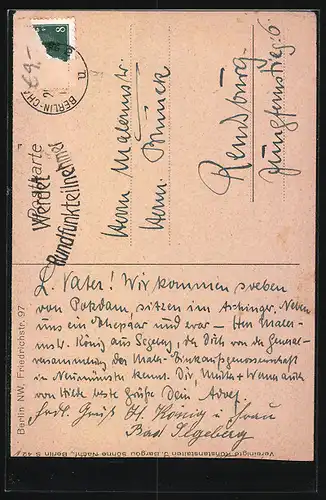 8
BERLIN-CHA
€9.-
Postkarte
Werdet
Rundfunkteilnehmer
Herrn Malermstr.
Herm. Brinck
Rendsburg
Jungfernstieg 6
L. Vater! Wir kommen soeben
von Potsdam, sitzen im Aschinger. Neben
uns ein Ehepaar und zwar – Herr Maler-
mstr. König aus Segeberg, der Dich von der General-
versammlung der Maler-Einkaufsgenossenschaft
in Neumünster kennt. Dir, Mutter + Wanna auch
von Hilde beste Grüße Dein Adolf
Frdl. Gruß H. König u. Frau
Bad Segeberg
Berlin NW, Friedrichstr. 97
Vereinigte Kunstanstalten J. Bargou Söhne Nachf., Berlin S 42